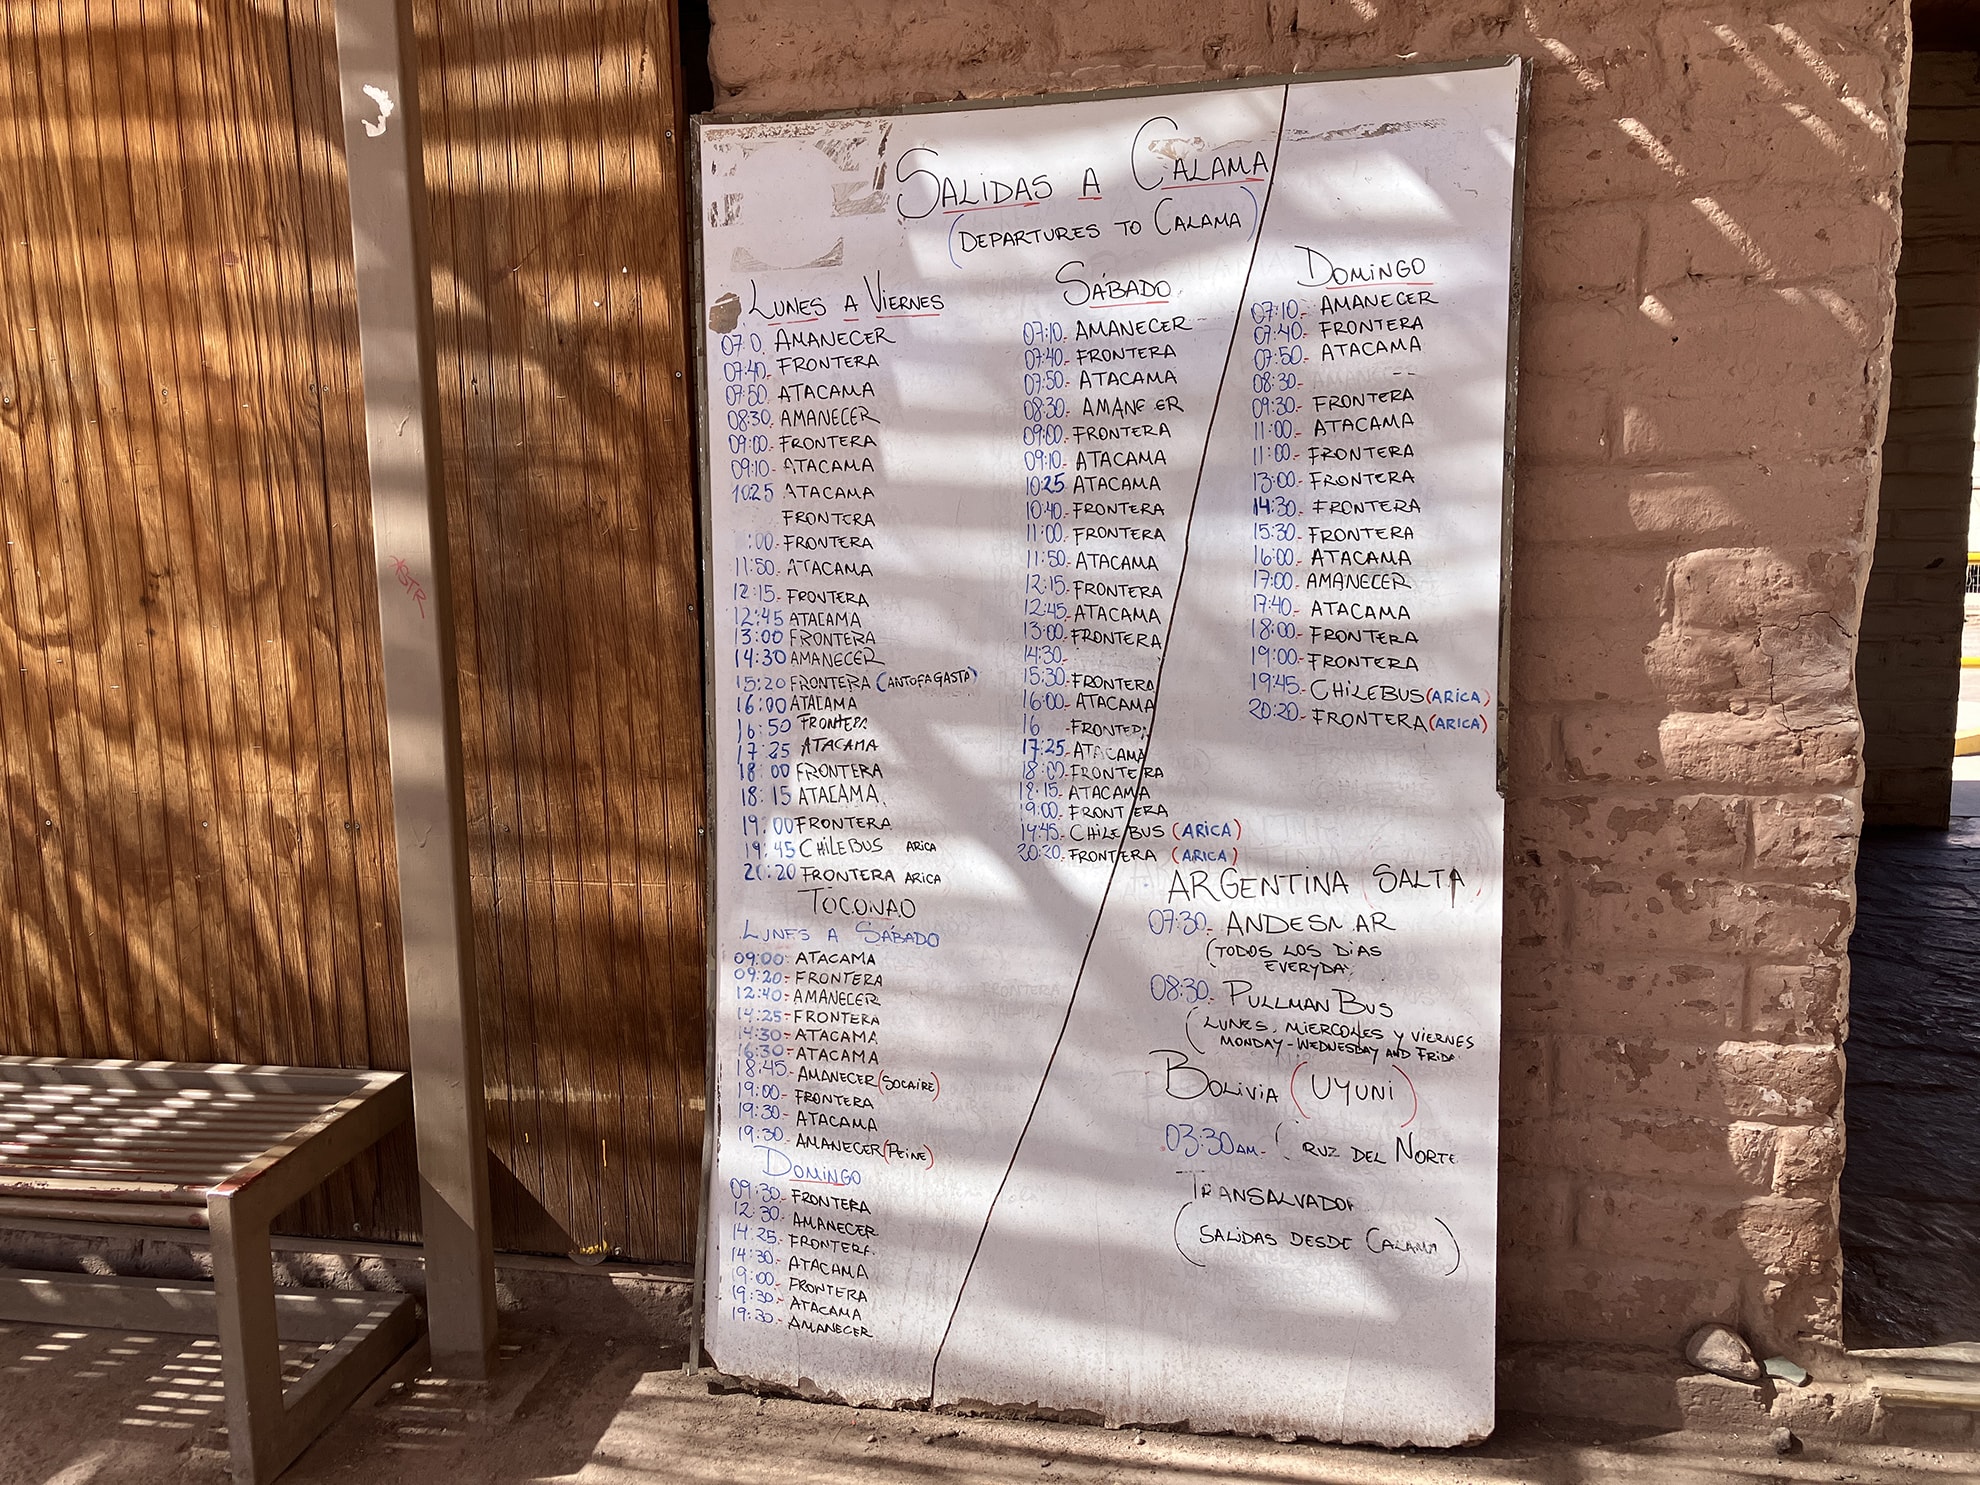 SALIDAS A CALAMA
(DEPARTURES TO CALAMA)
LUNES A VIERNES
07:0. AMANECER
07:40- FRONTERA
07:50 ATACAMA
08:30. AMANECER
09:00- FRONTERA
09:10- ATACAMA
1025 ATACAMA
FRONTERA
:00- FRONTERA
11:50. ATACAMA
12:15.- FRONTERA
12:45 ATACAMA
13:00 FRONTERA
14:30 AMANECER
15:20 FRONTERA (ANTOFAGASTA)
16:00 ATACAMA
16:50 FRONTER
17:25 ATACAMA
18:00 FRONTERA
18:15 ATACAMA
19:00 FRONTERA
19:45 CHILEBUS ARICA
20:20 FRONTERA ARICA
SÁBADO
07:10.- AMANECER
07:40.- FRONTERA
07:50.- ATACAMA
08:30.- AMANE ER
09:00.- FRONTERA
09:10.- ATACAMA
10:25 ATACAMA
10:40.- FRONTERA
11:00.- FRONTERA
11:50- ATACAMA
12:15.- FRONTERA
12:45.- ATACAMA
13:00.- FRONTERA
14:30.-
15:30.- FRONTERA
16:00.- ATACAMA
16 FRONTE
17:25- ATACAMA
18:00- FRONTERA
18:15. ATACAMA
19:00.- FRONTERA
19:45. CHILEBUS (ARICA)
20:20.- FRONTERA (ARICA)
DOMINGO
07:10.- AMANECER
07:40.- FRONTERA
07:50- ATACAMA
08:30-
09:30- FRONTERA
11:00- ATACAMA
11:00- FRONTERA
13:00- FRONTERA
14:30- FRONTERA
15:30- FRONTERA
16:00- ATACAMA
17:00- AMANECER
17:40- ATACAMA
18:00- FRONTERA
19:00- FRONTERA
19:45- CHILEBUS (ARICA)
20:20.- FRONTERA (ARICA)
TOCONAO
LUNES A SÁBADO
09:00- ATACAMA
09:20- FRONTERA
12:40- AMANECER
14:25- FRONTERA
14:30- ATACAMA
16:30- ATACAMA
18:45- AMANECER (SOCAIRE)
19:00- FRONTERA
19:30- ATACAMA
19:30.- AMANECER (PEINE)
DOMINGO
09:30- FRONTERA
12:30- AMANECER
14:25- FRONTERA
14:30- ATACAMA
19:00- FRONTERA
19:30- ATACAMA
19:30- AMANECER
ARGENTINA (SALTA)
07:30.- ANDESMAR
(TODOS LOS DIAS
EVERYDA
08:30.- PULLMAN BUS
(LUNES, MIERCOLES Y VIERNES
MONDAY-WEDNESDAY AND FRIDA
BOLIVIA (UYUNI)
03:30AM.- CRUZ DEL NORTE
TRANSALVADOR
(SALIDAS DESDE CALAMA)